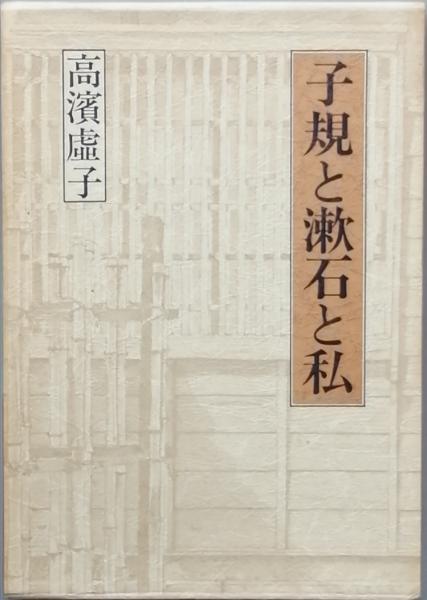 子規と漱石と私
高濱虛子